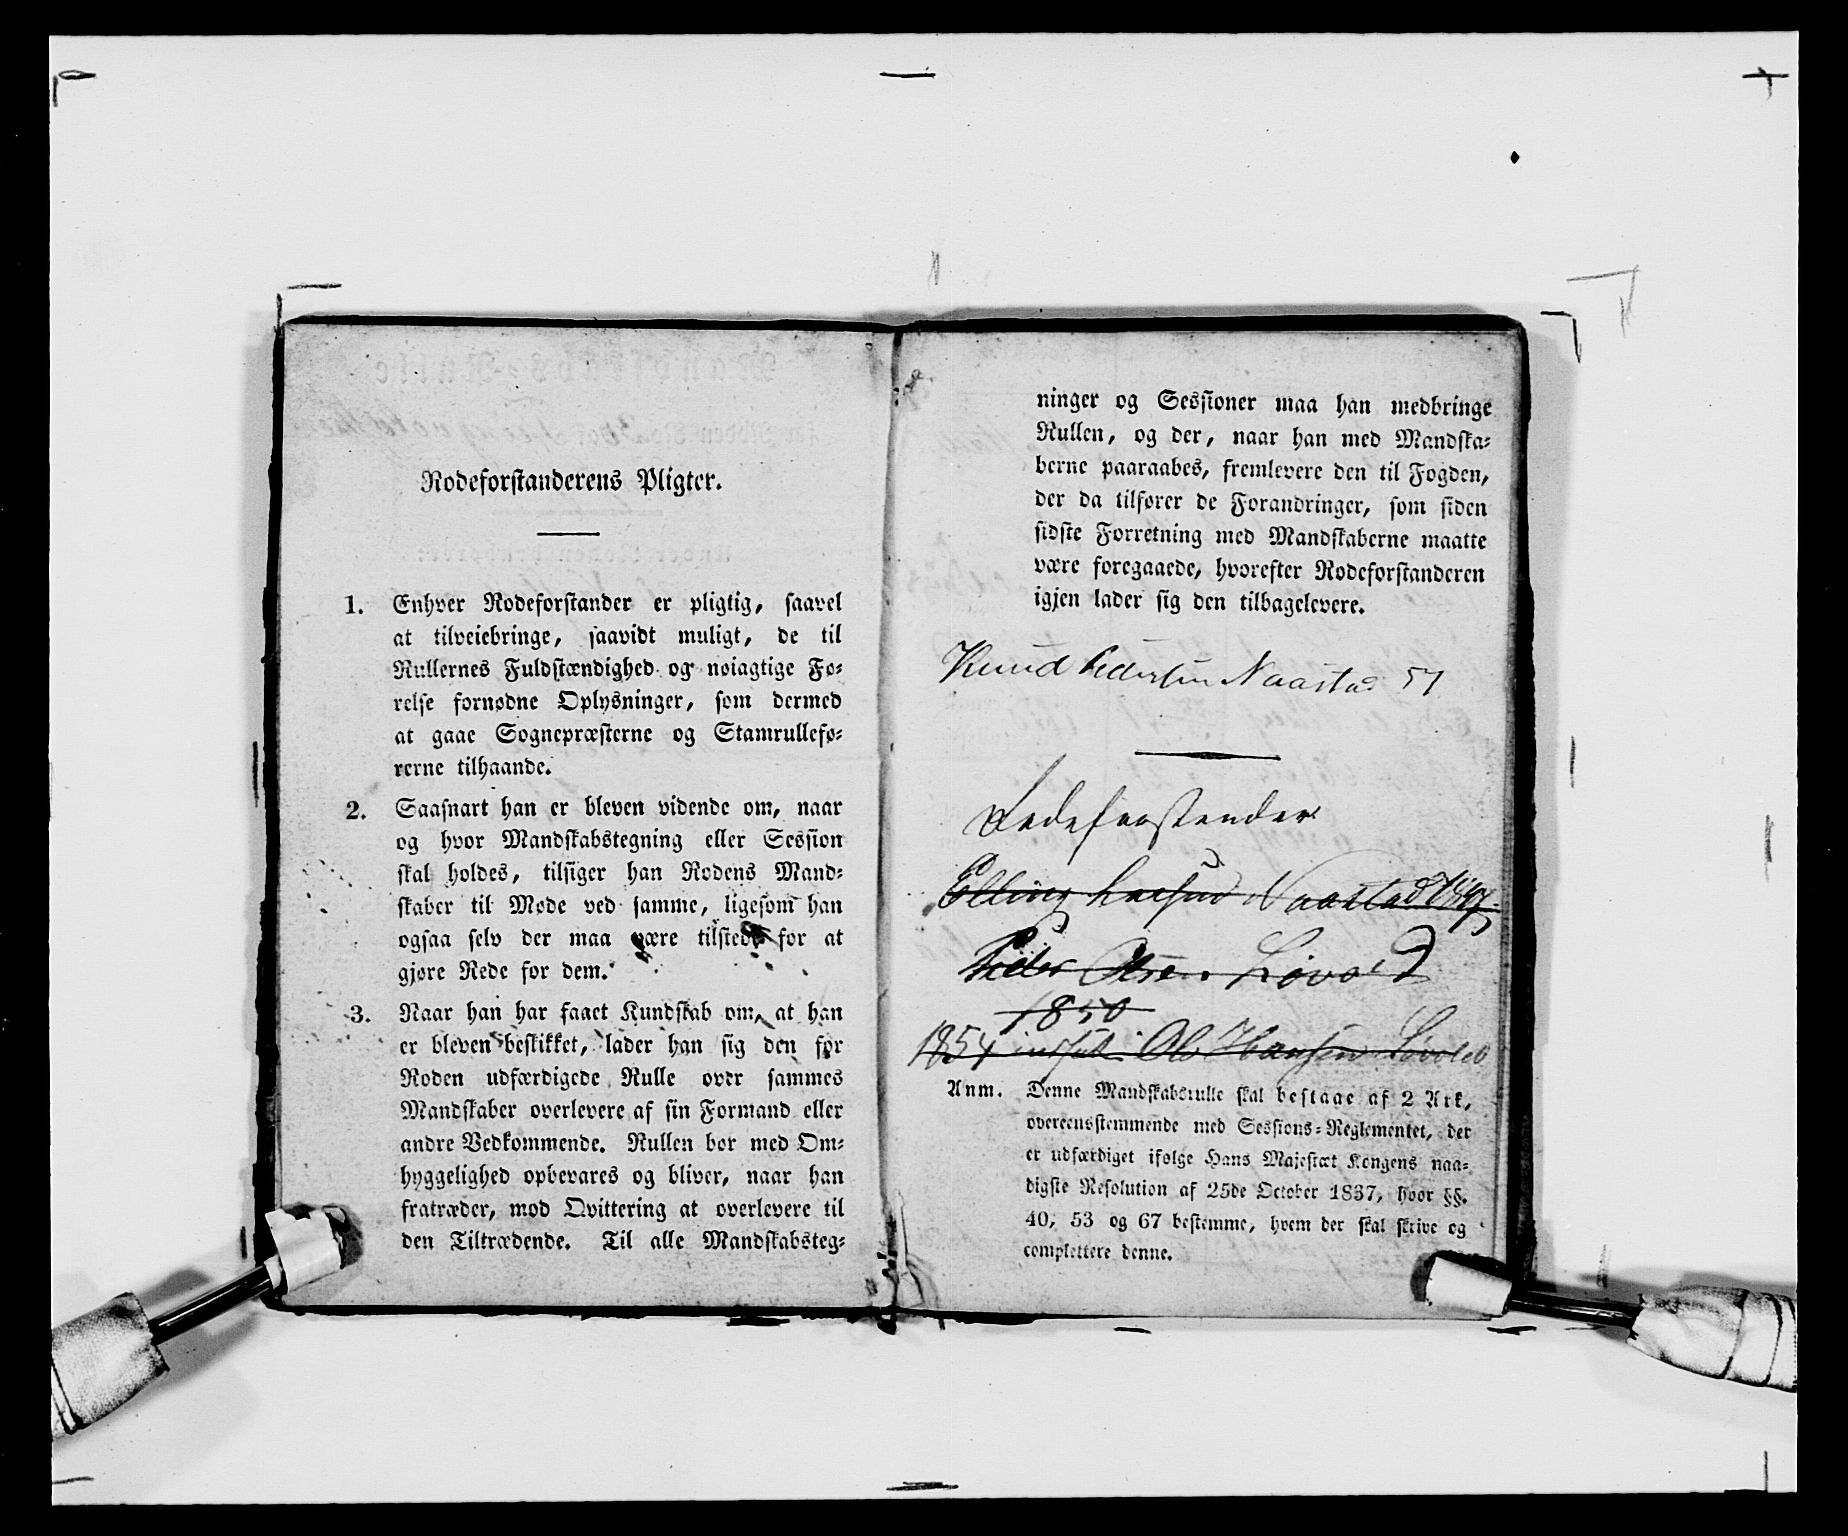 Rodeforstanderens Pligter.
1. Enhver Rodeforstander er pligtig, saavel
at tilveiebringe, saavidt muligt, de til
Rullernes Fuldstændighed og nøiagtige Fø-
relse fornødne Oplysninger, som dermed
at gaae Sognepræsterne og Stamrullefø-
rerne tilhaande.
2. Saasnart han er bleven vidende om, naar
og hvor Mandskabstegning eller Session
skal holdes, tilsiger han Rodens Mand-
skaber til Møde ved samme, ligesom han
ogsaa selv der maa være tilstede for at
gjøre Rede for dem.
3. Naar han har faaet Kundskab om, at han
er bleven beskikket, lader han sig den for
Roden udfærdigede Rulle over sammes
Mandskaber overlevere af sin Formand eller
andre Vedkommende. Rullen bør med Om-
hyggelighed opbevares og bliver, naar han
fratræder, mod Qvittering at overlevere til
den Tiltrædende. Til alle Mandskabsteg-
ninger og Sessioner maa han medbringe
Rullen, og der, naar han med Mandska-
berne paaraabes, fremlevere den til Fogden,
der da tilfører de Forandringer, som siden
sidste Forretning med Mandskaberne maatte
være foregaaede, hvorefter Rodeforstanderen
igjen lader sig den tilbagelevere.
Knud Pedersen Naastad 57
Rodeforstender
Elling Naastad
Peder Olsen Løvold
1850
1854 Ole Hansen Løvold
Anm. Denne Mandskabsrulle skal bestaae af 2 Ark,
overeensstemmende med Sessions-Reglementet, der
er udfærdiget ifølge Hans Majestæt Kongens naa-
digste Resolution af 25de October 1837, hvor §§.
40, 53 og 67 bestemme, hvem der skal skrive og
complettere denne.